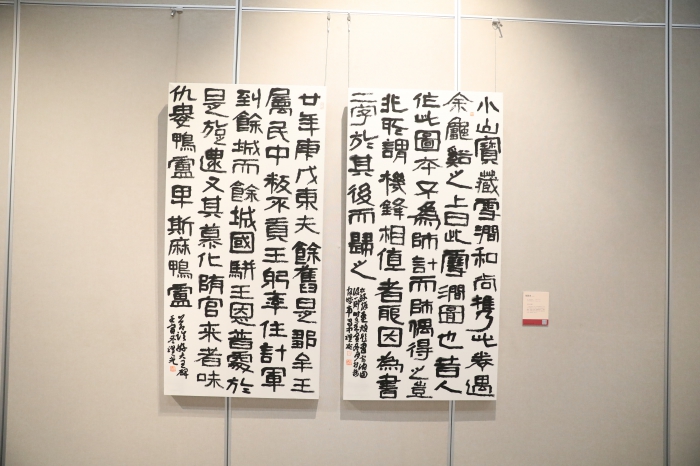 小山寶藏雪澗和尚携此卷過
余龐谿之上曰此雪澗圖也昔人
作此圖本不為師計而師偶得之豈
非所謂機鋒相值者耶因為書
二字於其後而歸之
廿年庚戊東夫餘舊是鄒牟王
屬民中叛不貢王躬率住計軍
到餘城而餘城國駢王恩普處於
是旋還又其慕化隨官來者味
仇婁鴨盧卑斯麻鴨盧
好大王碑